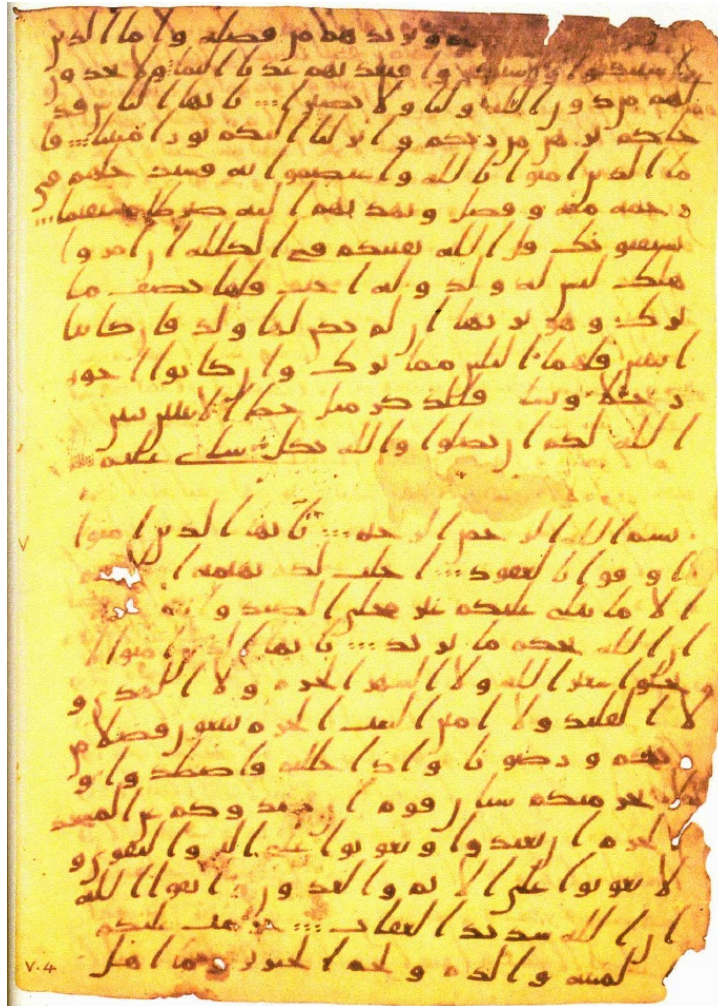 ويزيدهم من فضله واما الذين
استنكفوا واستكبروا فيعذبهم عذابا اليما ولا يجدون
لهم من دون الله وليا ولا نصيرا يايها الناس قد
جاكم برهن من ربكم وانزلنا اليكم نورا مبينا فا
ما الذين امنوا بالله واعتصموا به فسيدخلهم في
رحمه منه وفضل ويهديهم اليه صرطا مستقيما
يستفتونك قل الله يفتيكم في الكلله ان امروا
هلك ليس له ولد وله اخت فلها نصف ما
ترك وهو يرثها ان لم يكن لها ولد فان كانتا
اثنتين فلهما الثلثن مما ترك وان كانوا اخوه
رجلا ونسا فللذكر مثل حظ الانثيين يبين
الله لكم ان تضلوا والله بكل شاى عليم
بسم الله الرحمن الرحيم يايها الذين امنوا
اوفوا بالعقود احلت لكم بهيمه
الا ما يتلى عليكم غير محلى الصيد وا
ان الله يحكم ما يريد يايها الذين امنوا لا
تحلوا شعير الله ولا الشهر الحرم ولا الهدى و
لا القليد ولا امين البيت الحرم يبتغون فضلا من
ربهم ورضونا واذا حللتم فاصطدوا و
لا يجرمنكم شنان قوم ان صدوكم عن المسجد
الحرم ان تعتدوا وتعونوا على البر والتقوى و
لا تعونوا على الاثم والعدون واتقوا الله
ان الله شديد العقاب حرمت عليكم
الميته والدم ولحم الخنزير وما اهل
V.4